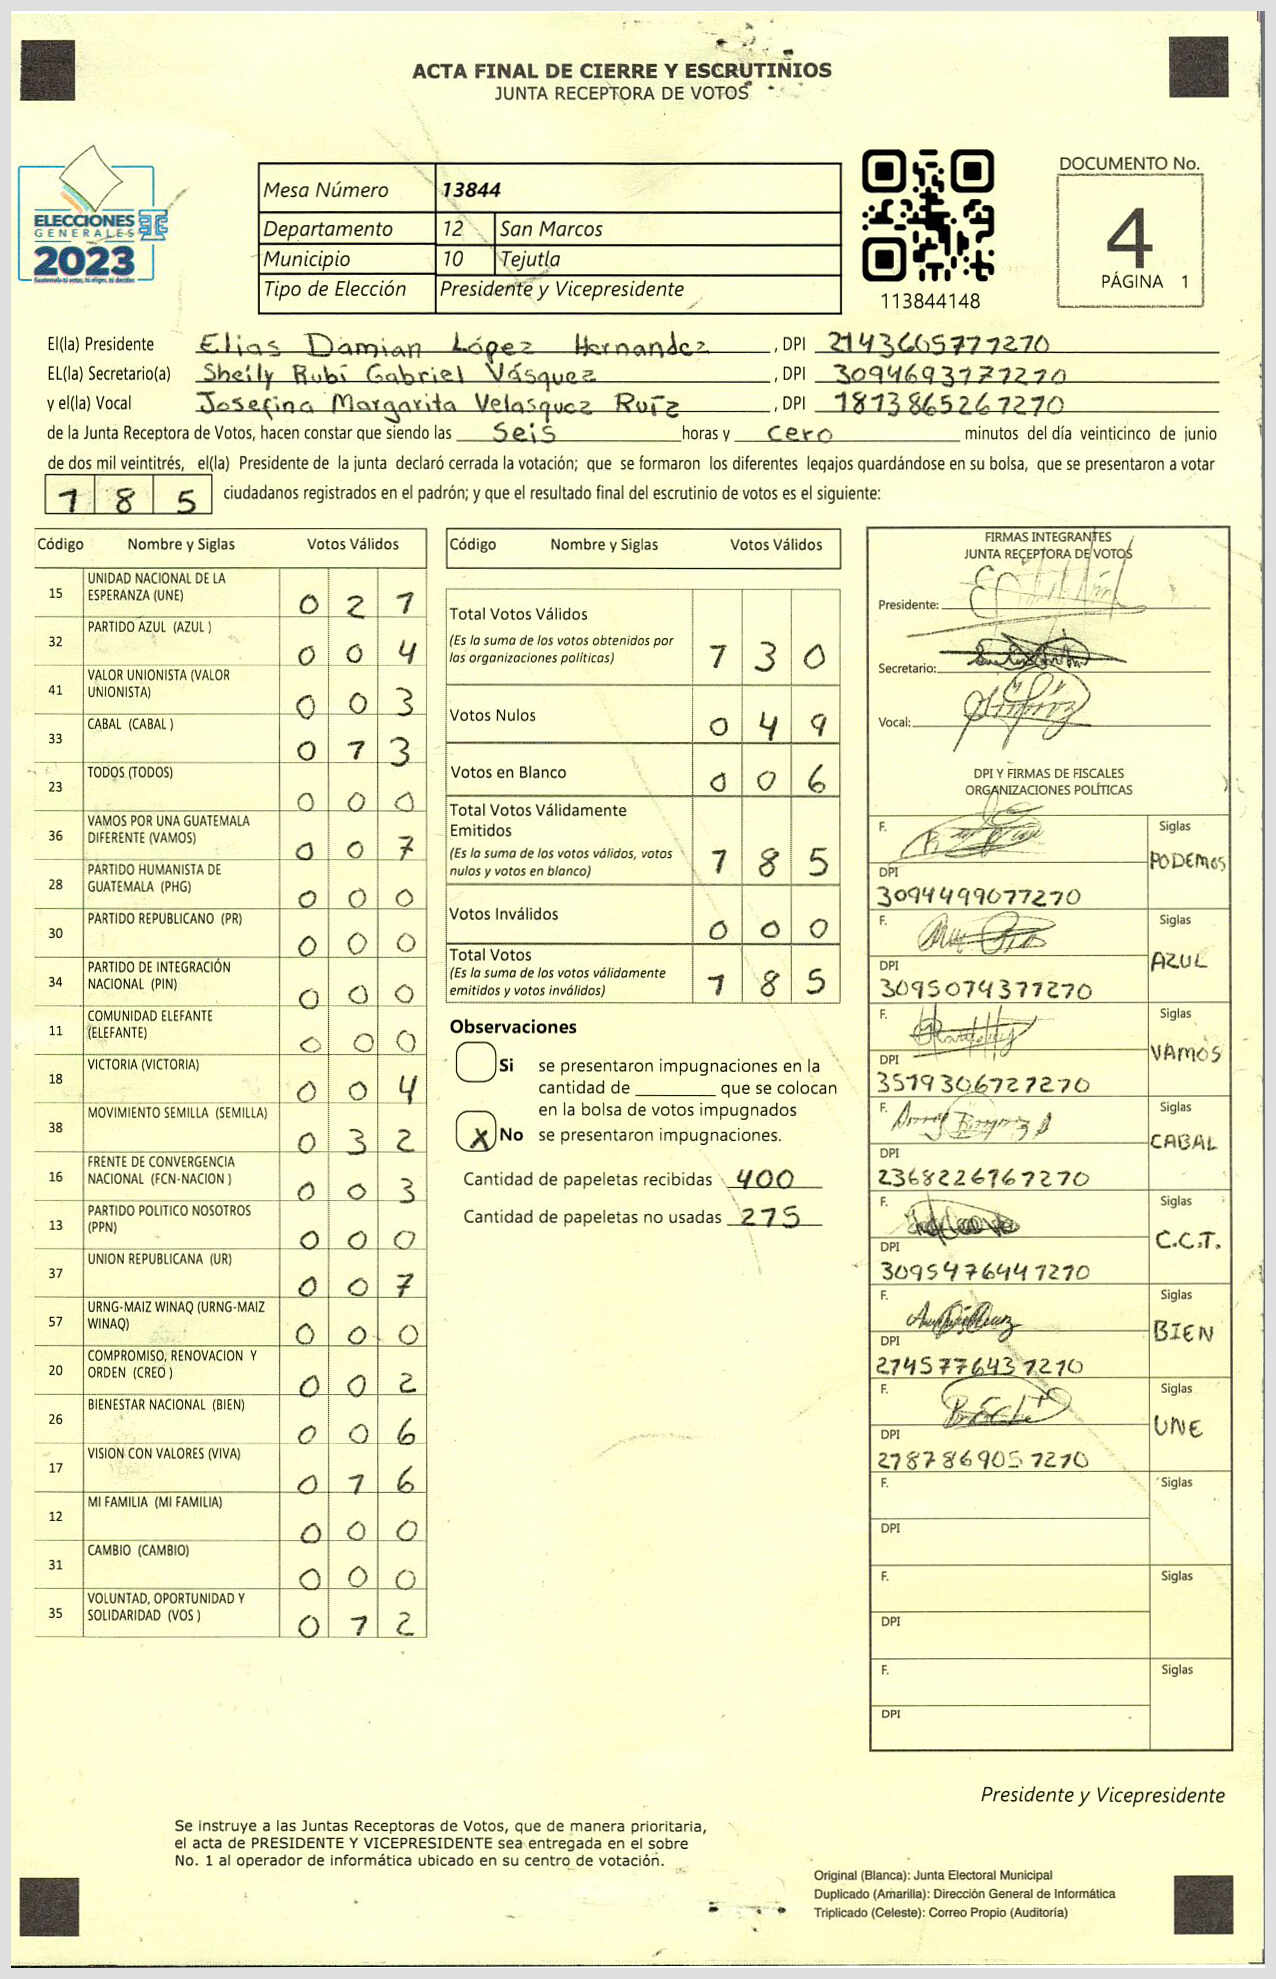 ACTA FINAL DE CIERRE Y ESCRUTINIOS
JUNTA RECEPTORA DE VOTOS
ELECCIONES
GENERALES
2023
Guatemala tú votas, tú eliges, tú decides
Mesa Número 13844
Departamento 12 San Marcos
Municipio 10 Tejutla
Tipo de Elección Presidente y Vicepresidente
113844148
DOCUMENTO No.
4
PÁGINA 1
El(la) Presidente Elias Damian López Hernandez , DPI 2143605771210
EL(la) Secretario(a) Sheily Rubí Gabriel Vásquez , DPI 3094693771210
y el(la) Vocal Josefina Margarita Velasquez Ruíz , DPI 1813865261210
de la Junta Receptora de Votos, hacen constar que siendo las Seis horas y cero minutos del día veinticinco de junio
de dos mil veintitrés, el(la) Presidente de la junta declaró cerrada la votación; que se formaron los diferentes legajos guardándose en su bolsa, que se presentaron a votar
185 ciudadanos registrados en el padrón; y que el resultado final del escrutinio de votos es el siguiente:
Código Nombre y Siglas Votos Válidos
15 UNIDAD NACIONAL DE LA ESPERANZA (UNE) 021
32 PARTIDO AZUL (AZUL ) 004
41 VALOR UNIONISTA (VALOR UNIONISTA) 003
33 CABAL (CABAL ) 013
23 TODOS (TODOS) 000
36 VAMOS POR UNA GUATEMALA DIFERENTE (VAMOS) 007
28 PARTIDO HUMANISTA DE GUATEMALA (PHG) 000
30 PARTIDO REPUBLICANO (PR) 000
34 PARTIDO DE INTEGRACIÓN NACIONAL (PIN) 000
11 COMUNIDAD ELEFANTE (ELEFANTE) 000
18 VICTORIA (VICTORIA) 004
38 MOVIMIENTO SEMILLA (SEMILLA) 032
16 FRENTE DE CONVERGENCIA NACIONAL (FCN-NACION ) 003
13 PARTIDO POLITICO NOSOTROS (PPN) 000
37 UNION REPUBLICANA (UR) 007
57 URNG-MAIZ WINAQ (URNG-MAIZ WINAQ) 000
20 COMPROMISO, RENOVACION Y ORDEN (CREO ) 002
26 BIENESTAR NACIONAL (BIEN) 006
17 VISION CON VALORES (VIVA) 016
12 MI FAMILIA (MI FAMILIA) 000
31 CAMBIO (CAMBIO) 000
35 VOLUNTAD, OPORTUNIDAD Y SOLIDARIDAD (VOS ) 012
Código Nombre y Siglas Votos Válidos
Total Votos Válidos
(Es la suma de los votos obtenidos por
las organizaciones políticas) 130
Votos Nulos 049
Votos en Blanco 006
Total Votos Válidamente
Emitidos
(Es la suma de los votos válidos, votos
nulos y votos en blanco) 185
Votos Inválidos 000
Total Votos
(Es la suma de los votos válidamente
emitidos y votos inválidos) 185
Observaciones
Si se presentaron impugnaciones en la
cantidad de ________ que se colocan
en la bolsa de votos impugnados
X No se presentaron impugnaciones.
Cantidad de papeletas recibidas 400
Cantidad de papeletas no usadas 215
FIRMAS INTEGRANTES
JUNTA RECEPTORA DE VOTOS
Presidente:
Secretario:
Vocal:
DPI Y FIRMAS DE FISCALES
ORGANIZACIONES POLÍTICAS
F. Siglas
PODEMOS
DPI
3094499071210
F. Siglas
AZUL
DPI
3095074371210
F. Siglas
VAMOS
DPI
3519306721210
F. Siglas
CABAL
DPI
2368226761210
F. Siglas
C.C.T.
DPI
3095476441210
F. Siglas
BIEN
DPI
2145776431210
F. Siglas
UNE
DPI
2187869051210
F. Siglas
DPI
F. Siglas
DPI
F. Siglas
DPI
Presidente y Vicepresidente
Se instruye a las Juntas Receptoras de Votos, que de manera prioritaria,
el acta de PRESIDENTE Y VICEPRESIDENTE sea entregada en el sobre
No. 1 al operador de informática ubicado en su centro de votación.
Original (Blanca): Junta Electoral Municipal
Duplicado (Amarilla): Dirección General de Informática
Triplicado (Celeste): Correo Propio (Auditoría)